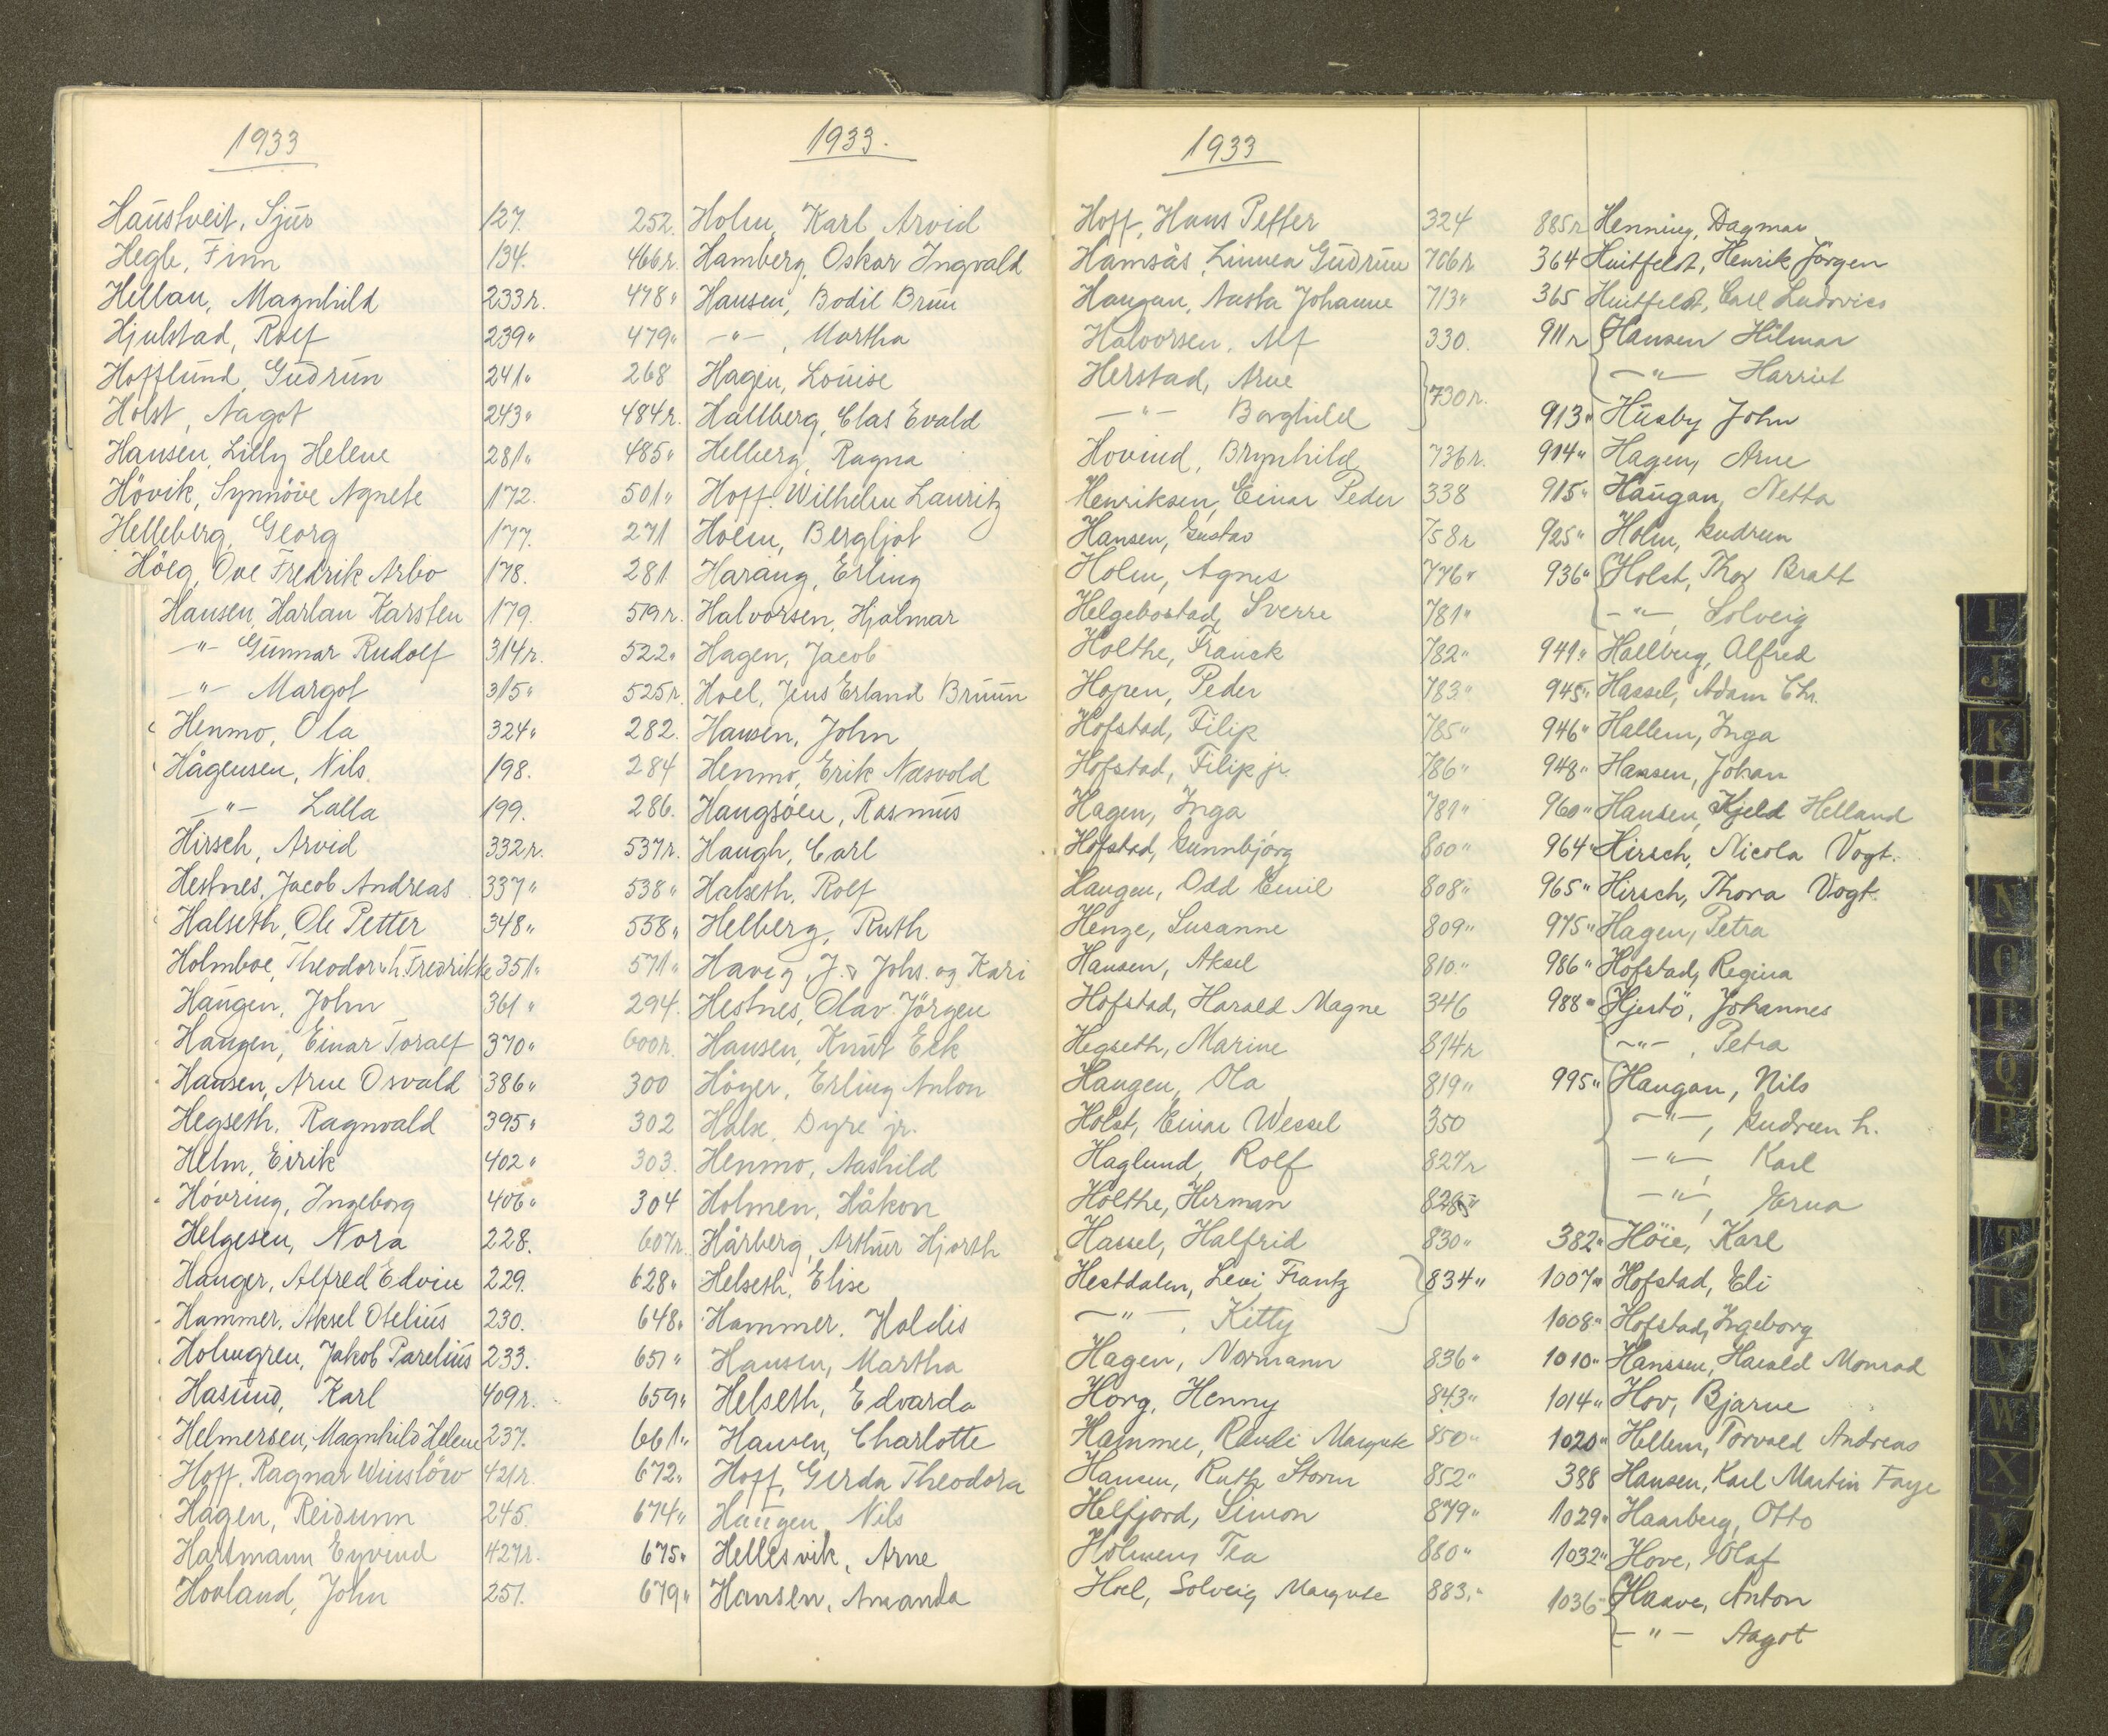 1933
Haustveit, Sjur 127.
Hegle, Finn 134.
Hellan, Magnhild 233r.
Hjulstad, Rolf 239"
Hofflund, Gudrun 241"
Holst, Aagot 243"
Hansen, Lilly Helene 281"
Hövik, Synnöve Agnete 172.
Helleberg, Georg 177.
Höeg, Ove Fredrik Arbo 178.
Hansen, Harlau Karsten 179.
-"- Gunnar Rudolf 314r.
-"- Margot 315"
Henmo, Ola 324"
Hågensen, Nils 198.
-"- Lalla 199.
Hirsch, Arvid 332r.
Hestnes, Jacob Andreas 337"
Halseth, Ole Petter 348"
Holmboe, Theodor h. Fredrikke 351"
Haugen, John 361"
Haugen, Einar Toralf 370"
Hansen, Arne Osvald 386"
Hegseth, Ragnvald 395"
Helm, Eirik 402"
Hövring, Ingeborg 406"
Helgesen, Nora 228.
Hauger, Alfred Edvin 229.
Hammer, Aksel Otelius 230.
Holmgren, Jakob Parelius 233.
Hasund, Karl 409r.
Helmersen, Magnhild Helene 237.
Hoff, Ragnar Winslöw 421r.
Hagen, Reidunn 245.
Hartmann Eyvind 427r.
Hovland, John 251.
1933.
252. Holm, Karl Arvid
466r. Hamberg, Oskar Ingvald
478" Hansen, Bodil Brun
479" -"-, Martha
268 Hagen, Louise
484r. Hallberg, Clas Evald
485" Helberg, Ragna
501" Hoff. Wilhelm Lauritz
271 Holm, Bergljot
281 Harang, Erling
519r. Halvorsen, Hjalmar
522" Hagen, Jacob
525r. Hoel, Jens Erland Bruun
282. Hansen, John
284 Henmo, Erik Næsvold
286. Haugsöen, Rasmus
537r. Haugh, Carl
538" Halseth, Rolf
558" Helberg, Ruth
571" Haveg, J. & Johs. og Kari
294. Hestnes, Olav Jörgen
600r. Hansen, Knut Eek
300 Höyer, Erling Anton
302 Halse, Dyre jr.
303. Henmo, Aashild
304 Holmen, Håkon
607r. Hårberg, Arthur Hjorth
628" Helseth, Elise
648" Hammer, Haldis
651" Hansen, Martha
659" Helseth, Edvarda
661" Hansen, Charlotte
672" Hoff, Gerda Theodora
674" Haugen, Nils
675" Hellesvik, Arne
679" Hansen, Amanda
1933
Hoff, Hans Petter 324
Hamsås, Linnea Gudrun 706r
Haugan, Aasta Johanne 713"
Halvorsen, Alf 330.
Herstad, Arne
-"- Borghild 730r.
Hovind, Brynhild 736r.
Henriksen, Einar Peder 338
Hansen, Gustav 758r
Holm, Agnes 776"
Helgebostad, Sverre 781"
Holthe, Franck 782"
Hopen, Peder 783"
Hofstad, Filip 785"
Hofstad, Filip jr. 786"
Hagen, Inga 789"
Hofstad, Gunnbjörg 800"
Haugen, Odd Emil 808"
Henze, Susanne 809"
Hansen, Aksel 810"
Hofstad, Harald Magne 346
Hegseth, Marine 814r
Haugen, Ola 819"
Holst, Einar Wessel 350
Haglund, Rolf 827r
Holthe, Herman
Hassel, Halfrid 830"
Hestdalen, Levi Frantz 834"
-"-, Kitty
Hagen, Normann 836"
Horg, Henny 843"
Hammer, Randi Margrete 850"
Hansen, Ruth Storm 852"
Helfjord, Simon 879"
Holmen, Tea 880"
Hoel, Solveig Margrete 883"
885r Henning, Dagmar
364 Huitfeldt, Henrik Jörgen
365 Huitfeldt, Carl Ludovics
911r Hansen Hilmar
-"- Harriet
913" Husby John
914" Hagen, Arne
915" Haugan, Netta
925" Holm, Gudrun
936" Holst, Thor Bratt
-"-, Solveig
941" Hallberg, Alfred
945" Hassel, Adam Chr.
946" Hallem, Inga
948" Hansen, Johan
960" Hansen, Kjeld Helland
964" Hirsch, Nicola Vogt.
965" Hirsch, Thora Vogt.
975" Hagen, Petra
986" Hofstad, Regina
988" Hjertö, Johannes
-"-, Petra
995" Haugan, Nils
-"-, Gudrun h.
-"- Karl
-"-, Erna
382" Höie, Karl
1007" Hofstad, Eli
1008" Hofstad, Ingeborg
1010" Hanssen, Harald Monrad
1014" Hov, Bjarne
1020" Hellem, Torvald Andreas
388 Hansen, Karl Martin Faye
1029" Haarberg, Otto
1032" Hove, Olaf
1036" Haave, Anton
-"- Aagot
I
J
K
L
N
O
P
Q
R
T
U
V
W
X
Y